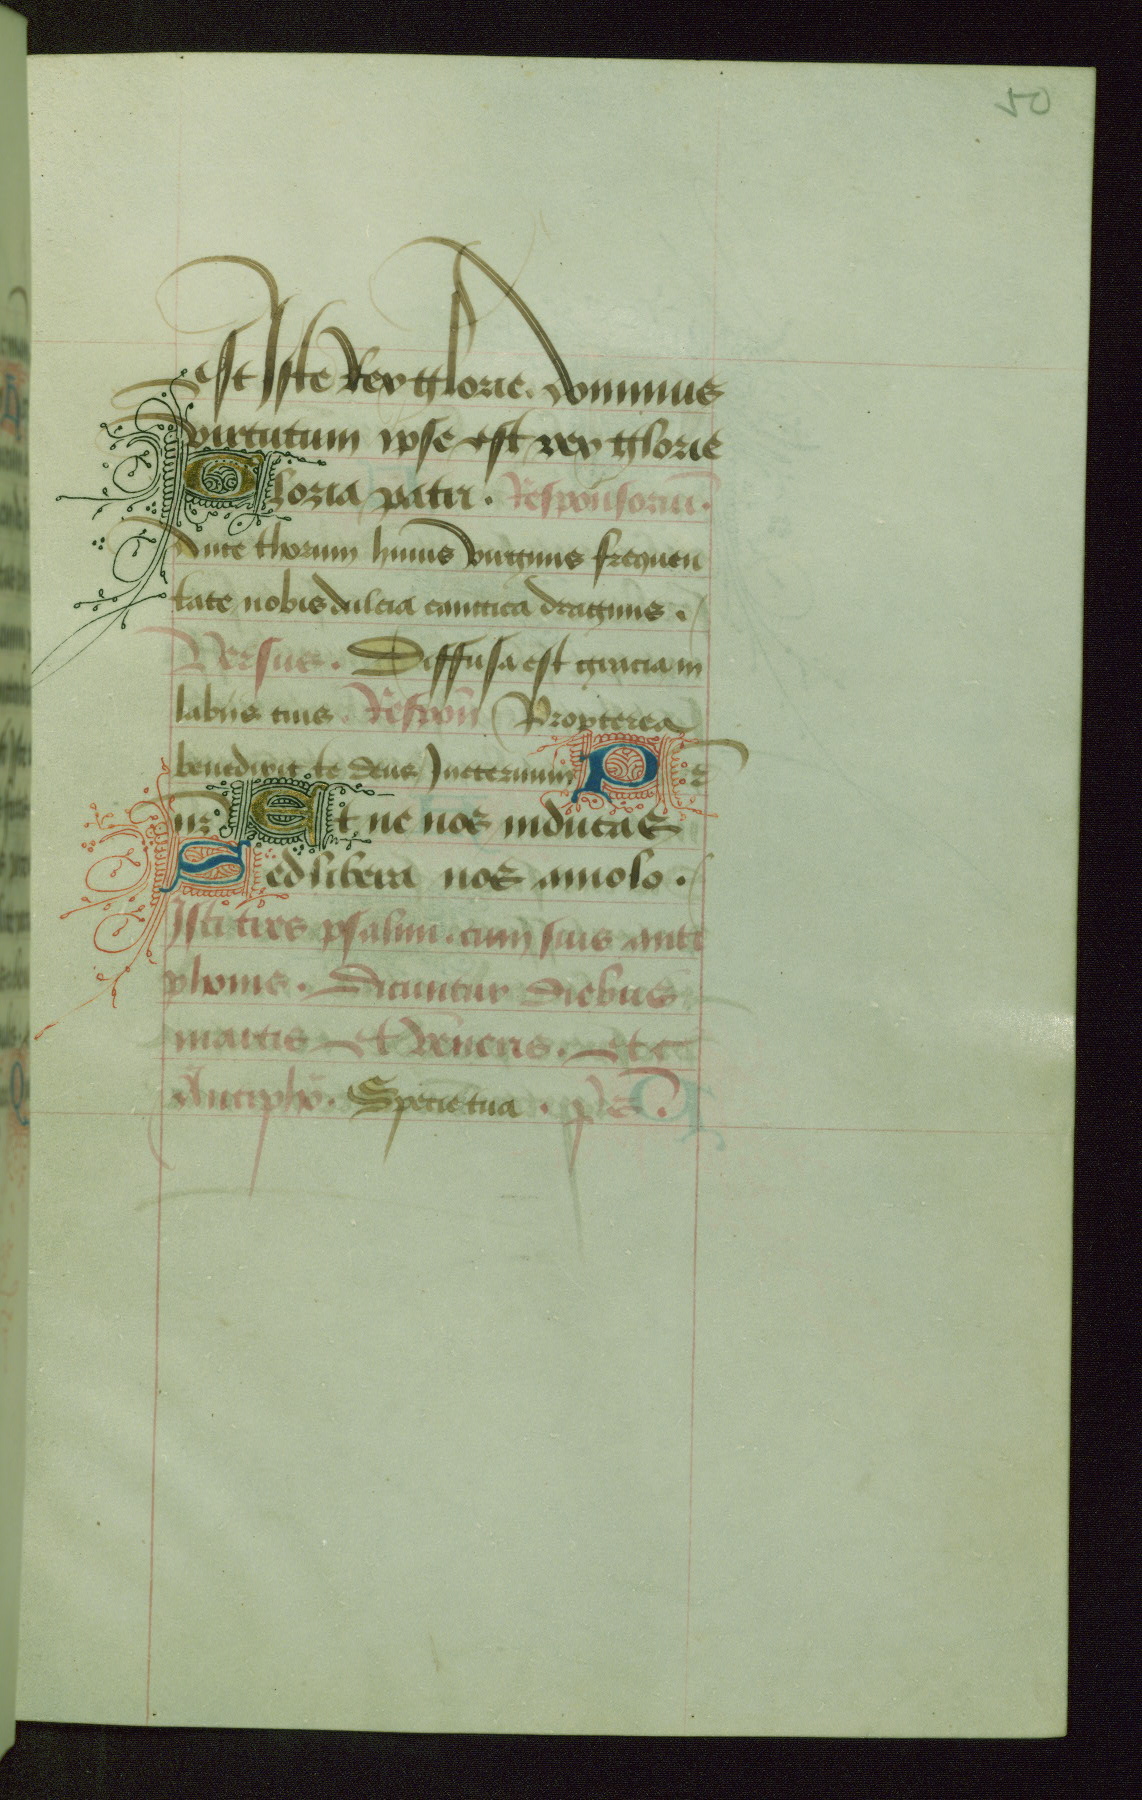 50
est Iste Rex glorie. dominus
virtutum ipse est rex glorie
Gloria patri. Responsoriu͂.
Ante thorum huius virginis frequen
tate nobis dulcia cantica dragmis.
Versus. Diffusa est gracia in
labiis tuis. Respon͂ Propterea
benedixit te deus Ineternum P r͂
nr͂ Et ne nos inducas
Sed libera nos amolo.
Isti tres psalmi. cum suis anti
phonis. Dicuntur diebus
martis et veneris. etc
Antipho͂. Specie tua. p͂s.